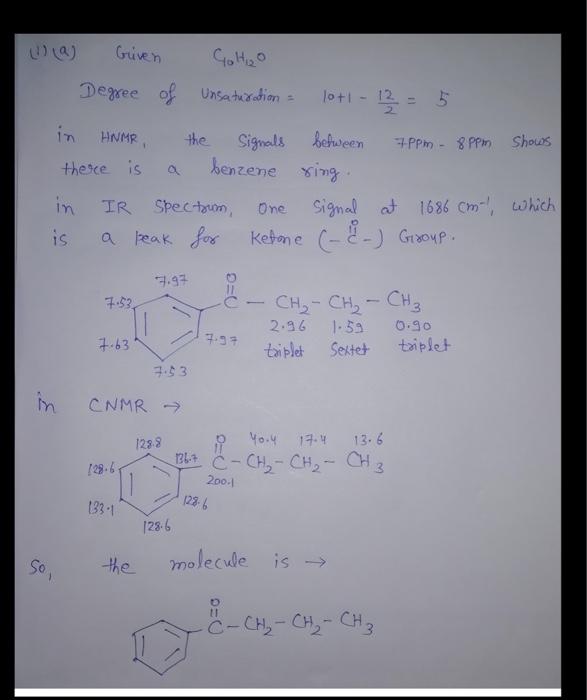 (1) (a) Given C10H12O
Degree of Unsaturation = 10+1 - 12/2 = 5
in HNMR, the Signals between 7PPm - 8PPm Shows
there is a benzene ring.
in IR Spectrum, One Signal at 1686 Cm-1, which
is a peak for Ketone (-C-) Group.
O
7.97
O
7.53
C - CH2 - CH2 - CH3
2.96 1.59 0.90
7.63
7.97
triplet Sextet triplet
7.53
in CNMR →
128.8
O 40.4 17.4 13.6
128.6
136.7
C - CH2 - CH2 - CH3
200.1
133.1
128.6
128.6
So, the molecule is →
O
C - CH2 - CH2 - CH3